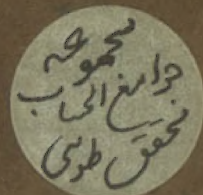 مجموعه
جوامع الحساب
محقق طوسی